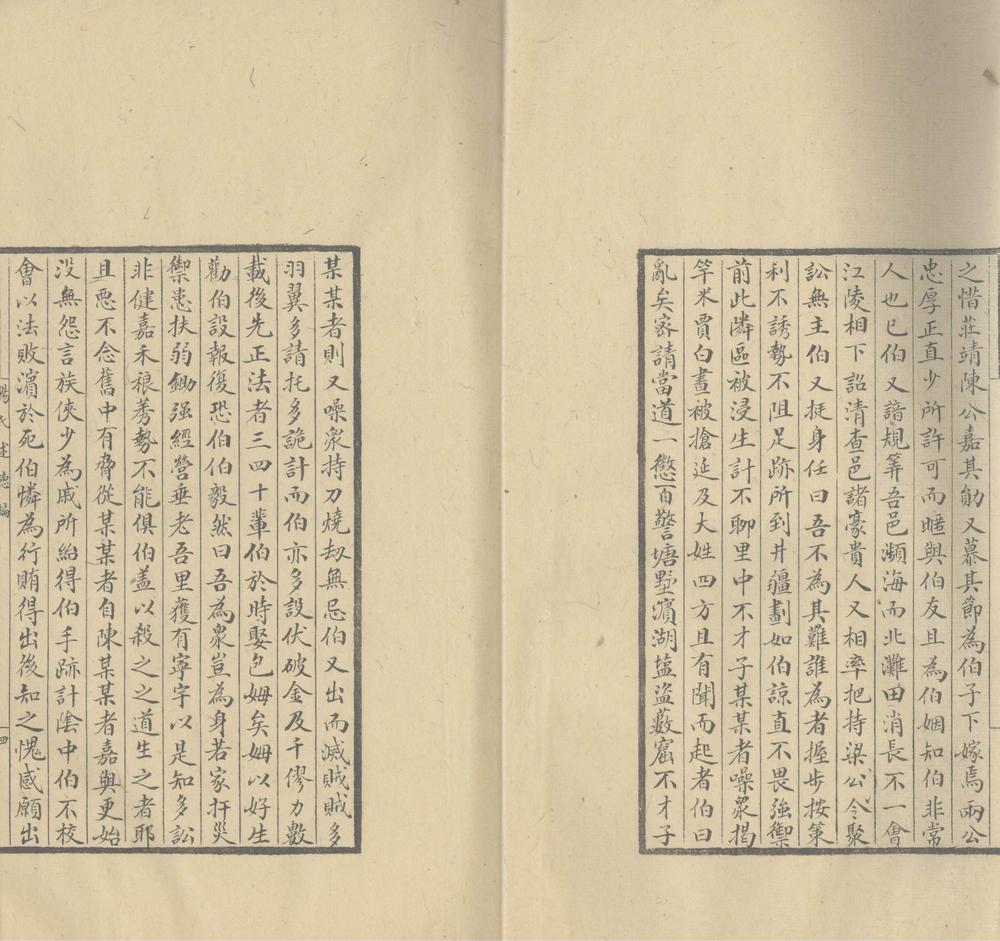 之惜莊靖陳公嘉其勛又慕其節為伯子下嫁焉兩公
忠厚正直少所許可而暱與伯友且為伯姻知伯非常
人也已伯又諳規筭吾邑瀕海而北灘田消長不一會
江陵相下詔清查邑諸豪貴人又相率把持梁公令聚
訟無主伯又挺身任曰吾不為其難誰為者握步按策
利不誘勢不阻足跡所到井疆劃如伯諒直不畏強禦
前此隣區被浸生計不聊里中不才子某某者噪眾揭
竿米賈白晝被搶延及大姓四方且有聞而起者伯曰
亂矣密請當道一懲百警塘墅濵湖塩盜藪窟不才子
某某者則又噪衆持刀燒刼無忌伯又出而減賊賊多
羽翼多請托多詭計而伯亦多設伏破金及千僇力數
載後先正法者三四十輩伯於時娶包姆矣姆以好生
勸伯設報復恐伯伯毅然曰吾為衆豈為身若家扞災
禦患扶弱鋤强經營垂老吾里獲有寧宇以是知多訟
非健嘉禾稂莠勢不能俱伯盖以殺之之道生之者耶
且惡不念舊中有脅從某某者自陳某某者嘉與更始
沒無怨言族俠少為戚所紿得伯手跡計陰中伯不校
會以法敗濵於死伯憐為行賄得出後知之愧感願出
楊氏述德編
四